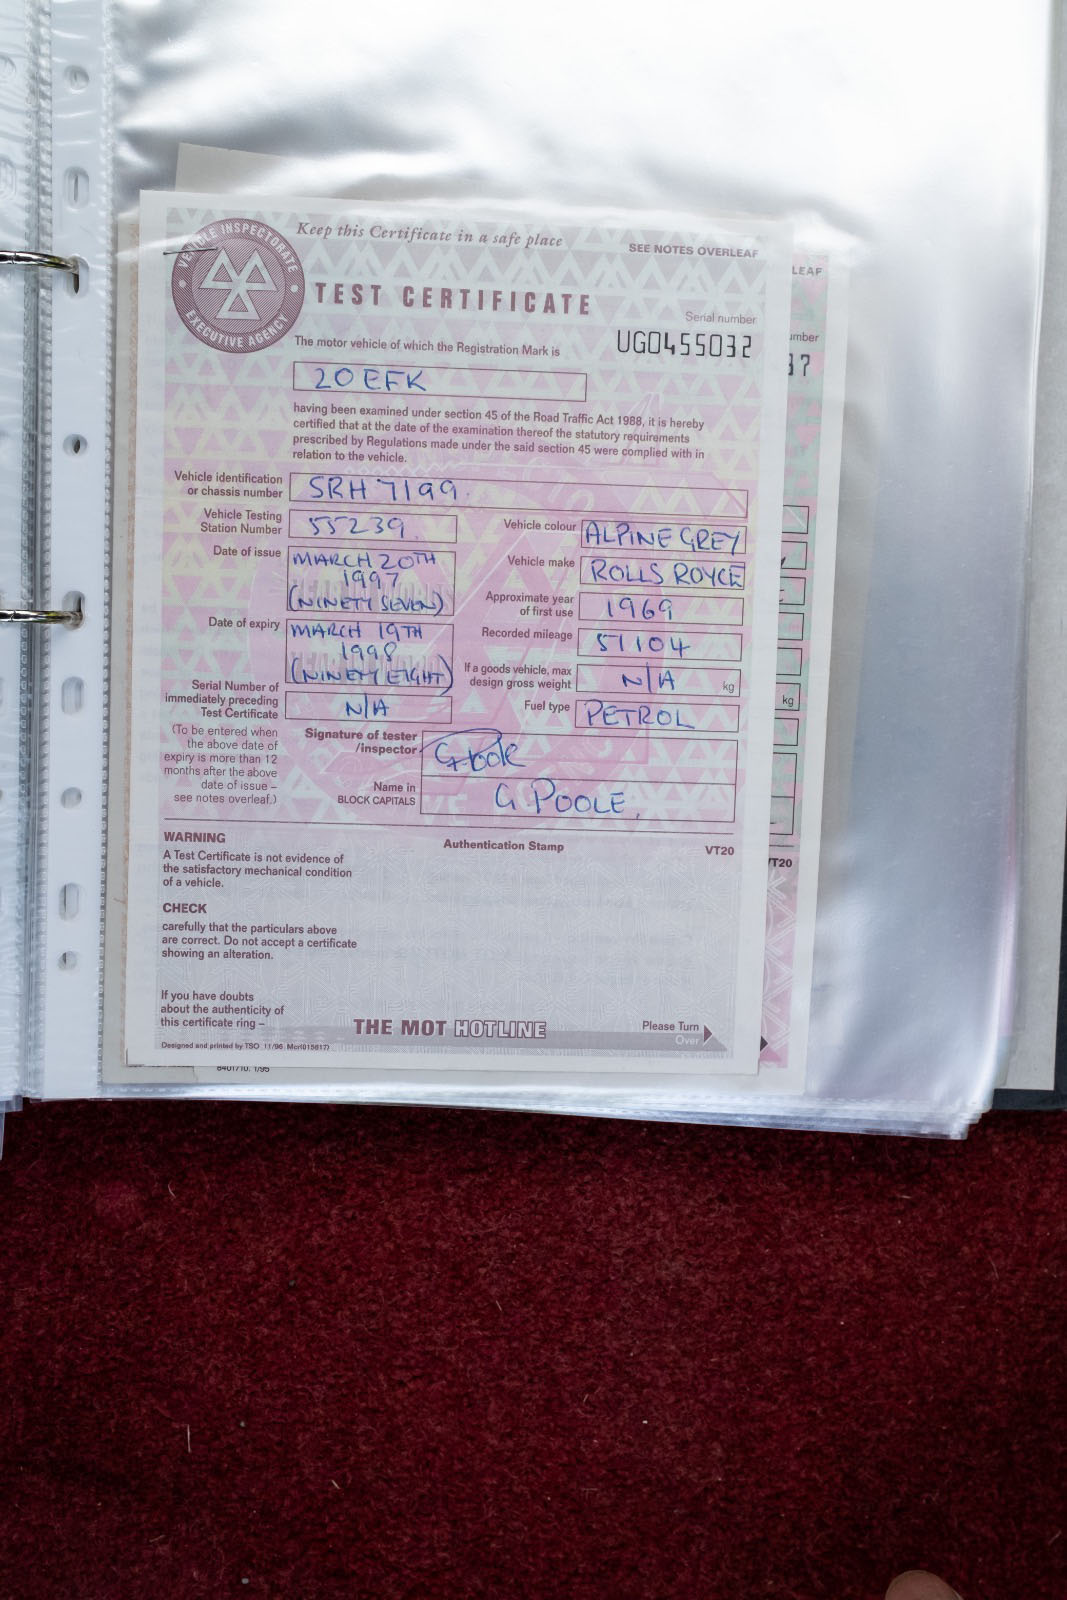 VEHICLE INSPECTORATE
EXECUTIVE AGENCY
Keep this Certificate in a safe place
SEE NOTES OVERLEAF
TEST CERTIFICATE
Serial number
UG0455032
The motor vehicle of which the Registration Mark is
20 EFK
having been examined under section 45 of the Road Traffic Act 1988, it is hereby
certified that at the date of the examination thereof the statutory requirements
prescribed by Regulations made under the said section 45 were complied with in
relation to the vehicle.
Vehicle identification
or chassis number
SRH 7199.
Vehicle Testing
Station Number
55239.
Vehicle colour
ALPINE GREY
Date of issue
MARCH 20TH
1997
(NINETY SEVEN)
Vehicle make
ROLLS ROYCE
Approximate year
of first use
1969
Date of expiry
MARCH 19TH
1998
(NINETY EIGHT)
Recorded mileage
51104
If a goods vehicle, max
design gross weight
N/A
kg
Serial Number of
immediately preceding
Test Certificate
N/A
Fuel type
PETROL
(To be entered when
the above date of
expiry is more than 12
months after the above
date of issue –
see notes overleaf.)
Signature of tester
/inspector
G Poole
Name in
BLOCK CAPITALS
G. POOLE.
WARNING
A Test Certificate is not evidence of
the satisfactory mechanical condition
of a vehicle.
Authentication Stamp
VT20
CHECK
carefully that the particulars above
are correct. Do not accept a certificate
showing an alteration.
If you have doubts
about the authenticity of
this certificate ring –
THE MOT HOTLINE
Please Turn
Over
Designed and printed by TSO 11/96 Mcr(015617)
LEAF
umber
37
kg
VT20
8401710. 1/95